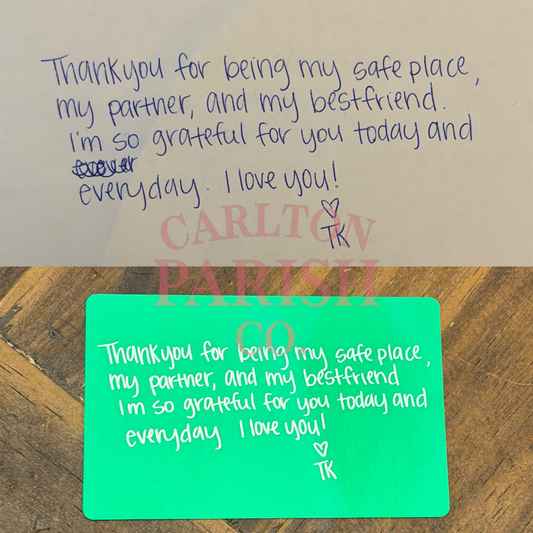 Thankyou for being my safe place,
my partner, and my bestfriend.
I'm so grateful for you today and
everyday. I love you!
TK
CARLTON
PARISH
CO.
Thankyou for being my safe place,
my partner, and my bestfriend
I'm so grateful for you today and
everyday I love you!
TK